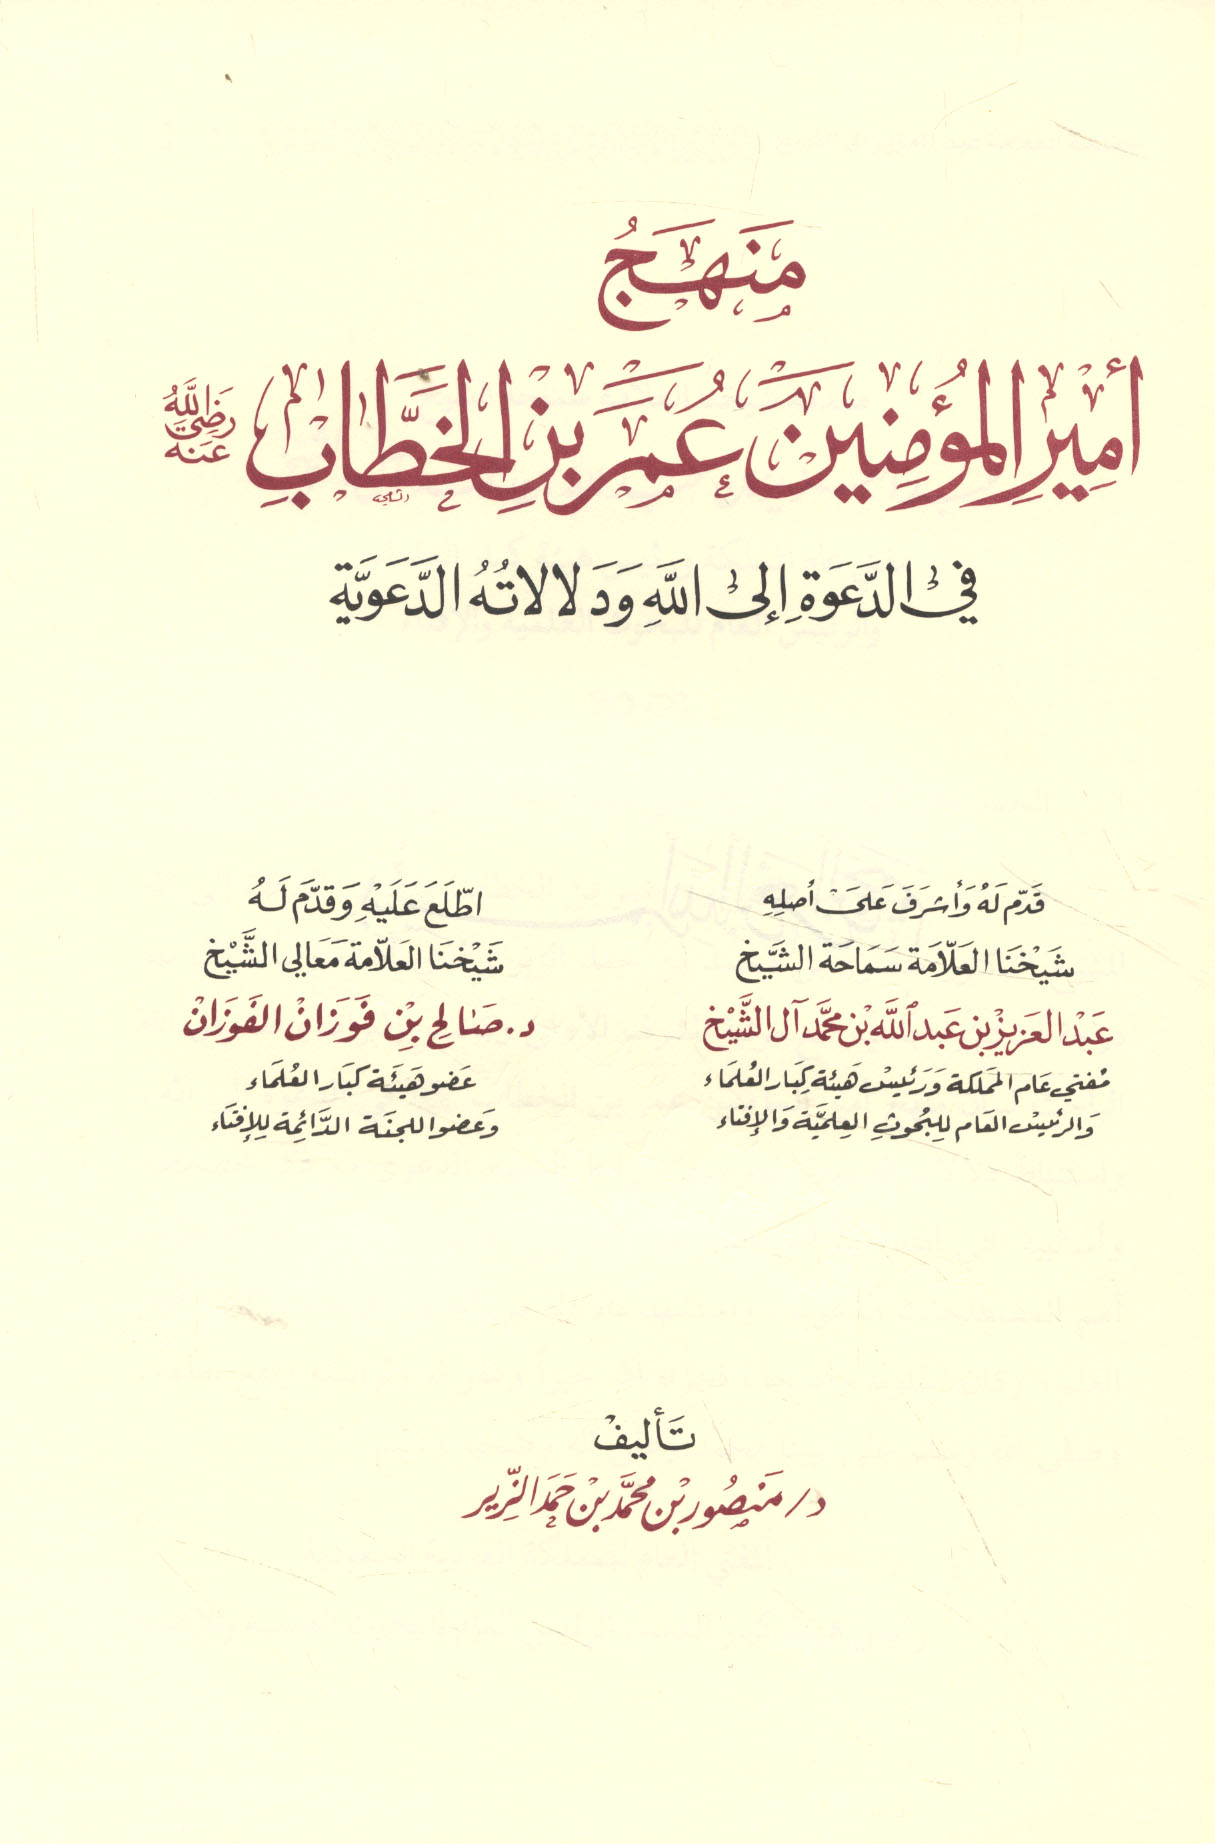 مَنهَجُ
أَمِيرِ المُؤمِنِينَ عُمَرَ بنِ الخَطَّابِ رَضِيَ اللَّهُ عَنهُ
في الدَّعَوَةِ إلى اللَّهِ وَدَلالاتُهُ الدَّعَوِيَّة
قَدّم لَهُ وَأَشرَفَ عَلى أصلِهِ
شَيْخنَا العَلّامَة سَمَاحَة الشَّيخ
عَبْد العَزيزْ بن عَبد اللَّه بْن محمَّد آل الشَّيْخ
مُفتي عَام المَملكة وَرَئيس هَيئة كِبَار العُلمَاء
وَالرئيسْ العَام لِلبُحوثِ العِلميَّة وَالإفتاء
اطّلَعَ عَلَيْهِ وَقدّمَ لَهُ
شَيْخنَا العَلاّمة مَعَالي الشَّيْخ
د. صَالح بِنْ فَوَزَانْ الفَوزَانْ
عَضو هَيئَة كبَار العُلمَاء
وَعضو اللجنَة الدَّائِمة لِلإفتَاء
تَأليفْ
د/ مَنصُور بْن محمَّد بْن حَمَد الزّير